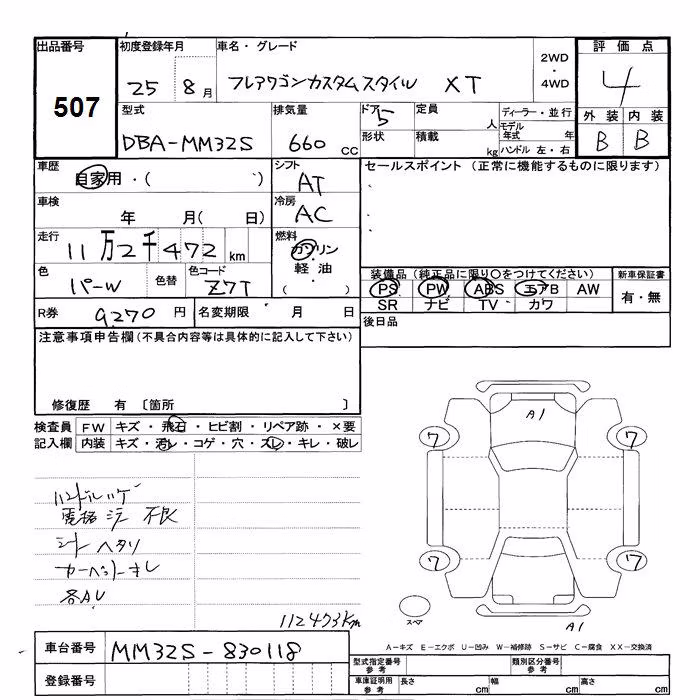 出品番号 初度登録年月 車名・グレード 2WD・4WD 評価点
507 25 8月 フレアワゴンカスタムスタイル XT 4
型式 排気量 ドア 5 定員 人 ディーラー・並行 外装 内装
DBA-MM32S 660 CC 形状 積載 kg モデル年式 年 ハンドル 左・右 B B
車歴 自家用・( ) シフト AT セールスポイント (正常に機能するものに限ります)
車検 年 月( 日) 冷房 AC
走行 11万2千472 km 燃料 ガソリン・軽油・( )
色 パーW 色替 色コード Z7T 装備品 (純正品に限り○をつけてください) 新車保証書
PS PW ABS エアB AW 有・無
SR ナビ TV カワ
R券 9,270 円 名変期限 月 日 後日品
注意事項申告欄(不具合内容等は具体的に記入して下さい)
修復歴 有 〔箇所 〕
検査員 FW キズ・飛石・ヒビ割・リペア跡・×要
記入欄 内装 キズ・汚レ・コゲ・穴・スレ・キレ・破レ
ハンドルハゲ
電格ミラー不良
シートヘタリ
カーペット
各AU
112473km
A1
ワ ワ
ワ ワ
スペア A1
A-キズ E-エクボ U-凹み W-補修跡 S-サビ C-腐食 XX-交換済
車台番号 MM32S-830118
登録番号
型式指定番号 参考 類別区分番号 参考
車庫証明用 参考 長さ cm 幅 cm 高さ cm